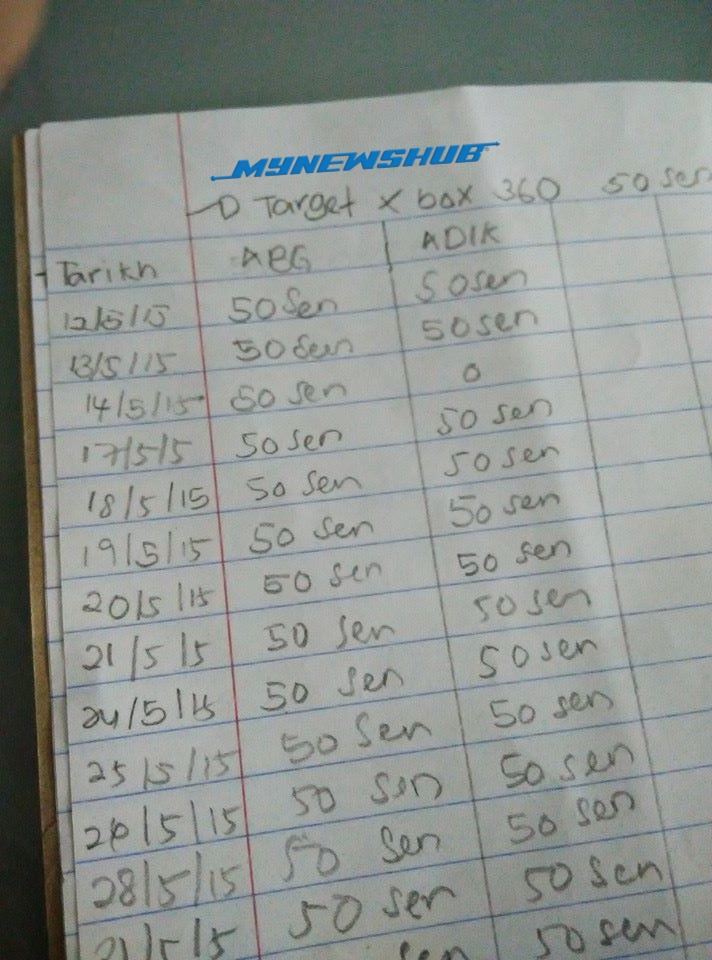 MYNEWSHUB
Target x box 360 50 sen
Tarikh ABG ADIK
12/5/15 50 Sen 50 sen
13/5/15 50 Sen 50 sen
14/5/15 50 sen 0
17/5/5 50 sen 50 sen
18/5/15 50 sen 50 sen
19/5/15 50 sen 50 sen
20/5/15 50 sen 50 sen
21/5/15 50 sen 50 sen
24/5/15 50 sen 50 sen
25/5/15 50 Sen 50 sen
26/5/15 50 sen 50 sen
28/5/15 50 Sen 50 sen
50 sen 50 sen
sen 50 sen